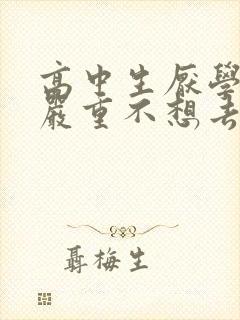 高中生厭學
嚴重不想去
聶梅生